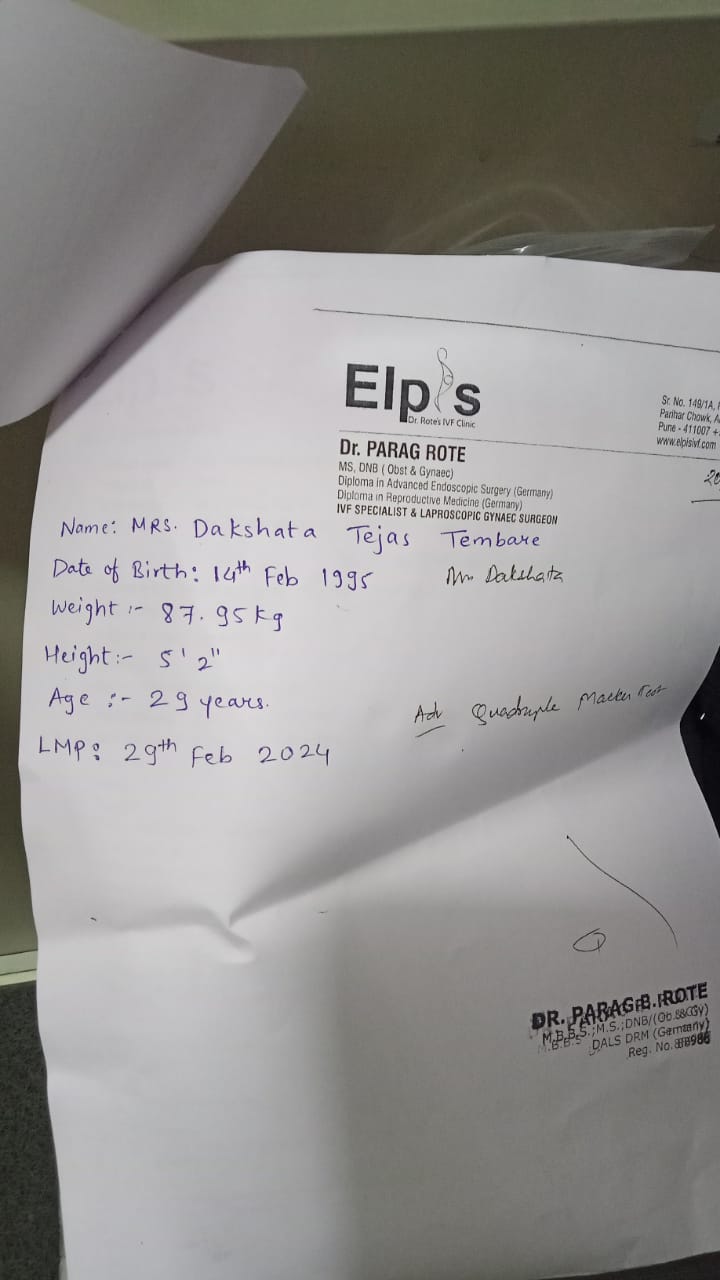 Elpis
Dr. Rote's IVF Clinic
Sr. No. 149/1A,
Parihar Chowk, A
Pune - 411007 +
www.elpisivf.com
Dr. PARAG ROTE
MS, DNB ( Obst & Gynaec)
Diploma in Advanced Endoscopic Surgery (Germany)
Diploma in Reproductive Medicine (Germany)
IVF SPECIALIST & LAPROSCOPIC GYNAEC SURGEON
20
Name: MRS. Dakshata Tejas Tembare
Date of Birth: 14th Feb 1995
Mrs Dakshata
Weight :- 87.95 kg
Height :- 5' 2"
Age :- 29 years.
Adv Quadruple Marker Test
LMP: 29th Feb 2024
DR. PARAG B. ROTE
M.B.B.S.;M.S.;DNB/(Ob.&Gy)
DALS DRM (Germany)
Reg. No.